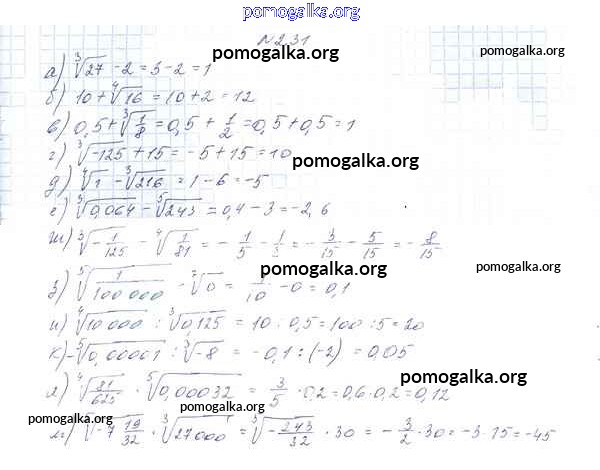 pomogalka.org
№ 231
pomogalka.org
pomogalka.org
а) ∛27 - 2 = 3 - 2 = 1
б) 10 + ∜16 = 10 + 2 = 12
pomogalka.org
в) 0,5 + ∛(1/8) = 0,5 + 1/2 = 0,5 + 0,5 = 1
г) ∛-125 + 15 = -5 + 15 = 10
pomogalka.org
д) ∜1 - ∛216 = 1 - 6 = -5
е) ∛0,064 - ⁵√243 = 0,4 - 3 = -2,6
ж) ∛(-1/125) - ∜(1/81) = -1/5 - 1/3 = -3/15 - 5/15 = -8/15
pomogalka.org
pomogalka.org
з) ⁵√(1/100 000) - √0 = 1/10 - 0 = 0,1
и) ∜10 000 : ∛0,125 = 10 : 0,5 = 100 : 5 = 20
к) -⁵√0,00001 : ∛-8 = -0,1 : (-2) = 0,05
pomogalka.org
л) ∜(81/625) · ⁵√0,00032 = 3/5 · 0,2 = 0,6 · 0,2 = 0,12
pomogalka.org
pomogalka.org
м) ⁵√(-7 19/32) · ∛27000 = ⁵√(-243/32) · 30 = -3/2 · 30 = -3 · 15 = -45
pomogalka.org